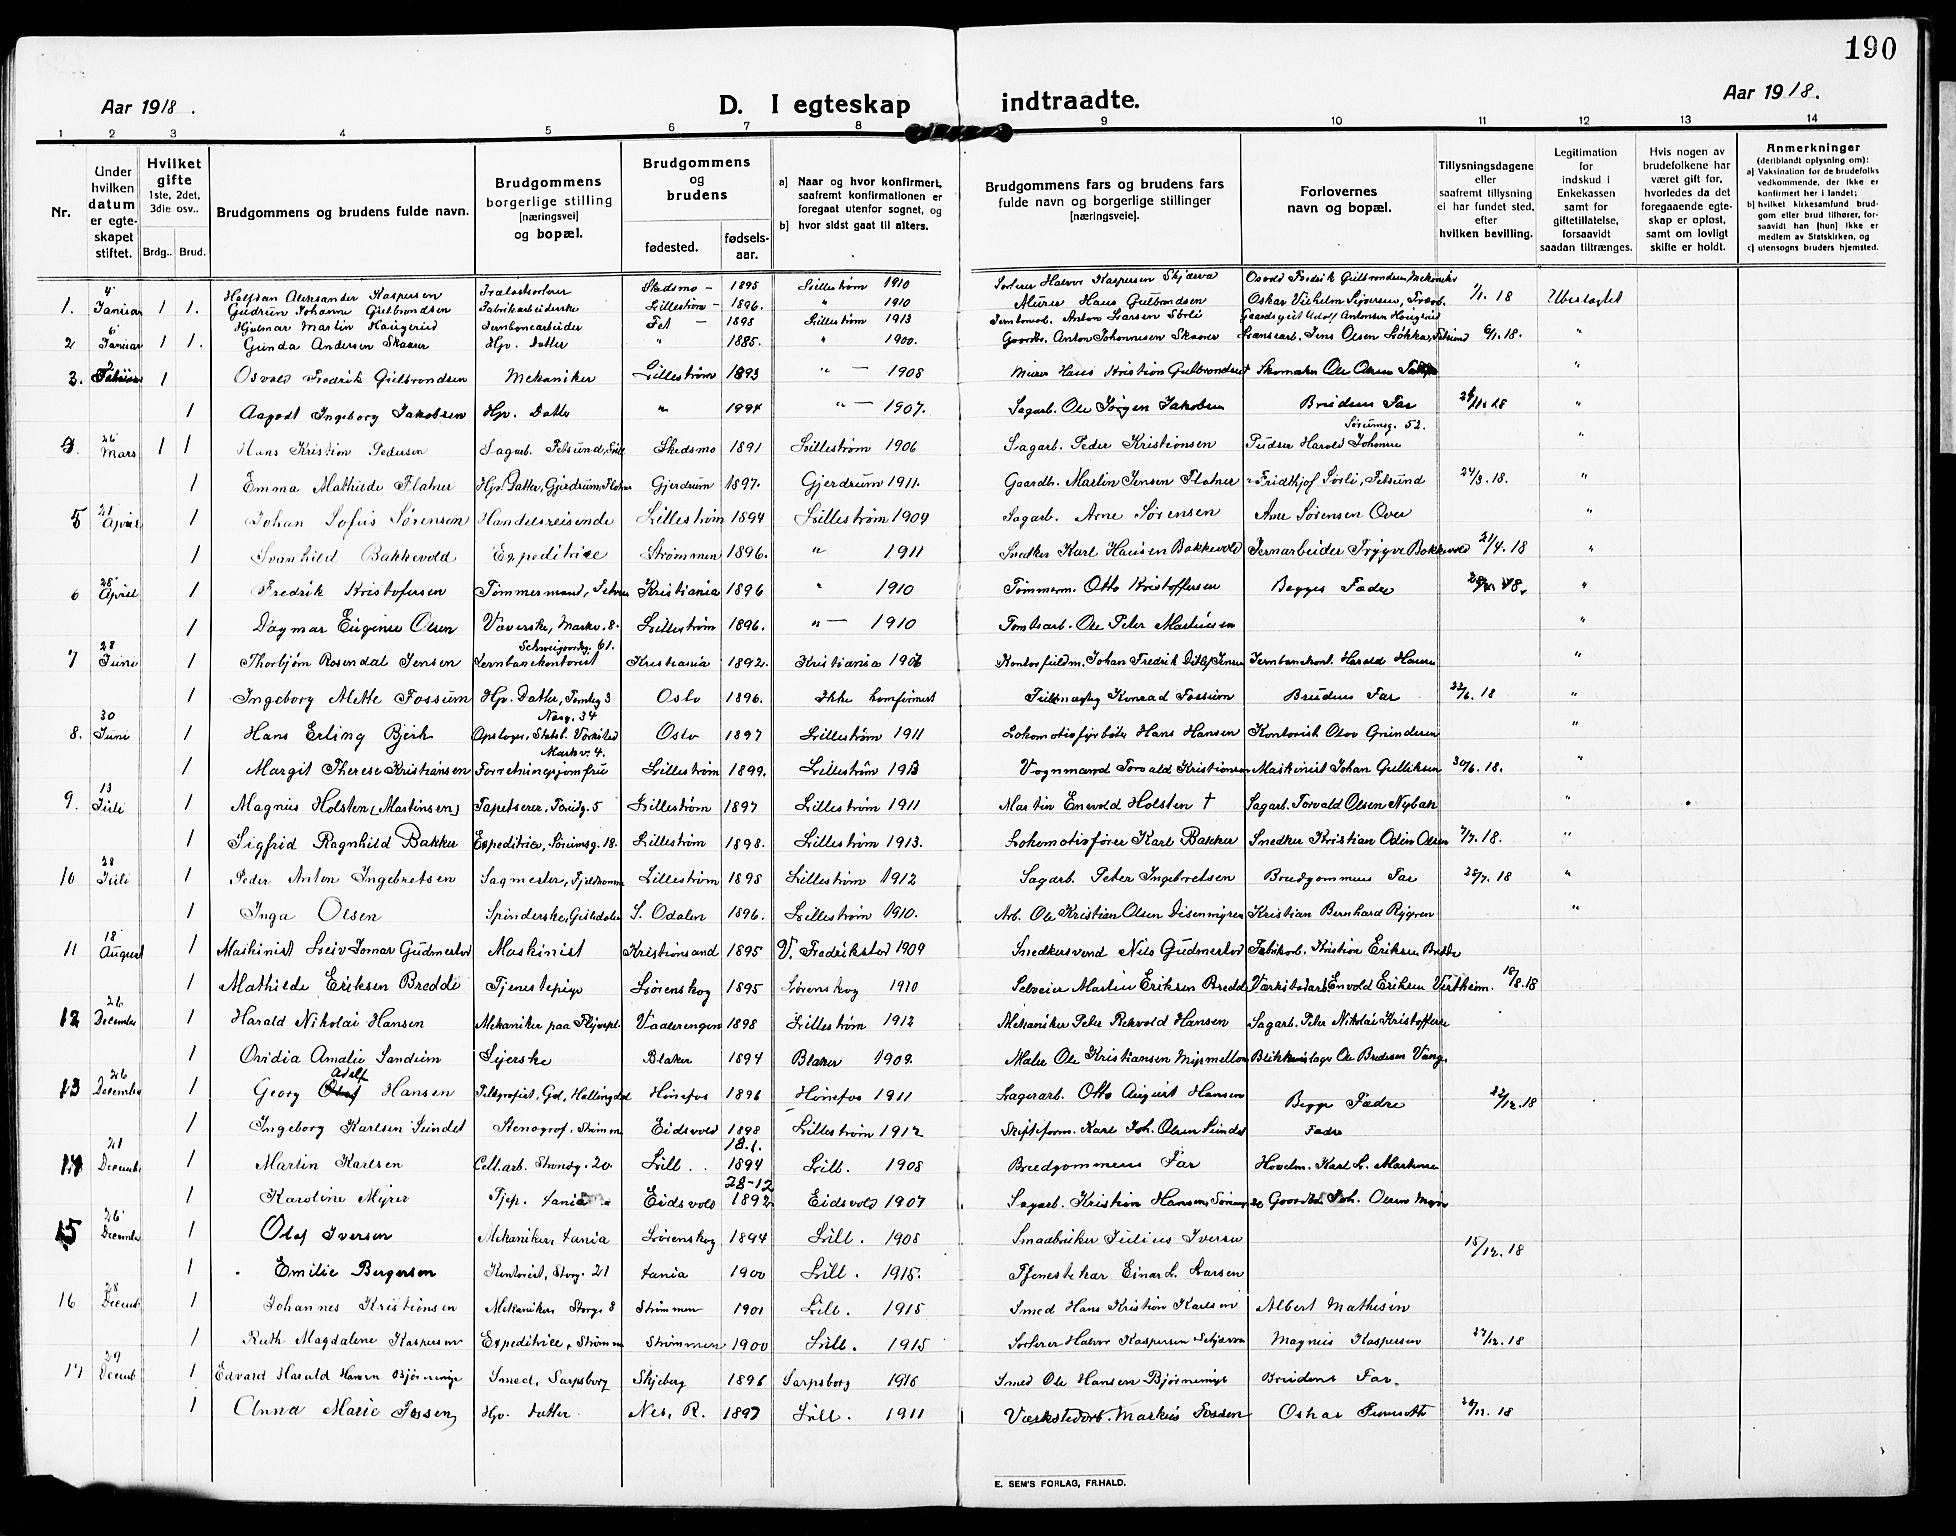 190
Aar 1918.
D. I egteskap indtraadte.
Aar 1918.
1 2 3 4 5 6 7 8 9 10 11 12 13 14
Nr.
Under hvilken datum er egte-skapet stiftet.
Hvilket gifte 1ste, 2det, 3die osv..
Brdg.. Brud.
Brudgommens og brudens fulde navn.
Brudgommens borgerlige stilling [næringsvei] og bopæl.
Brudgommens og brudens
fødested. fødsels-aar.
a) Naar og hvor konfirmert, saafremt konfirmationen er foregaat utenfor sognet, og
b) hvor sidst gaat til alters.
Brudgommens fars og brudens fars fulde navn og borgerlige stillinger [næringsveie].
Forlovernes navn og bopæl.
Tillysningsdagene eller saafremt tillysning ei har fundet sted, efter hvilken bevilling.
Legitimation for indskud i Enkekassen samt for giftetillatelse, forsaavidt saadan tiltrænges.
Hvis nogen av brudefolkene har været gift før, hvorledes da det foregaaende egte-skap er opløst, samt om lovligt skifte er holdt.
Anmerkninger (deriblandt oplysning om):
a) Vaksination for de brudefolks vedkommende, der ikke er konfirmert her i landet;
b) hvilket kirkesamfund brud-gom eller brud tilhører, for-saavidt han [hun] ikke er medlem av Statskirken, og
c) utensogns bruders hjemsted.
1. 4 Januar 1 1. Halfdan Aleksander Kaspersen Skedsmo - 1895 Lillestrøm 1910 Sorterer Halvor Kaspersen Skjærva Osvald Fredrik Gulbrandsen Mekaniker
Gudrun Johanne Gulbrandsen Fabrikarbeiderske Lillestrøm - 1896. " 1910 Murer Hans Gulbrandsen Oskar Vilhelm 1/1. 18 Ubeslagtet
2 6 Januar 1 1. Hjalmar Martin Haugerud Jernbanearbeider Fet - 1898 Lillestrøm 1913 Anton Larsen
Gunda Andersen Skaarer Hpv. Datter " 1885. " 1900. Gaardbr. Anton Johannesen Skaarer Jens Olsen 6/1. 18. "
3. 1 Osvald Fredrik Gulbrandsen Mekaniker Lillestrøm 1893 " — 1908 Murer Hans Kristian Gulbrandsen Skomaker Ole Olsen "
1 Aagodt Ingeborg Jakobsen Hp. Datter " 1894 " — 1907. Sagarb. Ole Jørgen Jakobsen Brudens Far "
4. 26 Mars 1 1 Hans Kristian Pedersen Sagarb. Fetsund, Skedsmo 1891 Lillestrøm 1906 Sagarb. Peder Kristiansen Pudser Harald Johansen Sørumsg. 52. "
1 Emma Mathilde Flatner Hp. Datter, Gjerdrum, Flatner Gjerdrum 1897. Gjerdrum 1911. Gaardb. Martin Jensen Flatner Fridthjof Sørli, Fetsund 24/3. 18. "
5 21 April 1 Johan Sofus Sørensen Handelsreisende Lillestrøm 1894 Lillestrøm 1909 Sagarb. Arne Sørensen Arne Sørensen Over "
1 Svanhild Bakkevold Expeditrice Strømmen 1896. " 1911 Snedker Karl Hansen Bakkevold Jernarbeider Trygve Bakkevold 21/4. 18 "
6 28 April 1 Fredrik Kristofersen Tømmermand, Kristiania 1896 " 1910 Tømmerm. Otto Kristoffersen Begges Fædre "
1 Dagmar Eugenie Olsen Væverske, Markv. 8. Lillestrøm 1896. " — 1910 Tomtarb. Ole Peter Martinsen "
7 28 Juni 1 Thorbjørn Rosendal Jensen Jernbanekontorist Schweigaardsg. 61. Kristiania 1892. Kristiania 1906 Kontorfuldm. Johan Fredrik Ditlef Jensen Jernbanekont. Harald Hansen "
1 Ingeborg Mette Fossum Hp. Datter, Tomteg 3 Oslo 1896. Ikke konfirmert Konrad Fossum Brudens Far 23/6. 18 "
8. 30 Juni 1 Hans Erling Bjerk Nesg. 34 Oslo 1897 Lillestrøm 1911 Lokomotivfyrbøter Hans Hansen Kontorist Olav Gundersen "
1 Margit Therese Kristiansen Forretningsjomfru Markv. 4. Lillestrøm 1899. Lillestrøm 1913 Vognmand Torvald Kristiansen Maskinist Johan Gulliksen 30/6. 18. "
9. 13 Juli 1 Magnus Holsten (Martinsen) Tapetserer, 5 Lillestrøm 1897 Lillestrøm 1911 Martin Enevold Holsten † Sagarb. Torvald Olsen Nybak "
1 Sigfrid Ragnhild Bakker Expeditrice, Sørumsg. 18. Lillestrøm 1898. Lillestrøm 1913. Lokomotivfører Karl Bakker Snedker Kristian Odin Olsen 7/7. 18. "
10 28 Juli 1 Peder Anton Ingebretsen Sagmester, Lillestrøm 1898 Lillestrøm 1912 Sagarb. Peter Ingebretsen Brudgommens Far 28/7. 18 "
1 Inga Olsen Spinderske, S. Odalen 1896. Lillestrøm 1910. Arb. Ole Kristian Olsen Disenmyren Kristian Bernhard Rygren "
11 18 August 1 Maskinist Leiv Ivmar Gudmestad Maskinist Kristiansand 1895 V. Fredrikstad 1909 Snedkersvend Nils Gudmestad Fabrikarb. Kristian Eriksen Bredde
1 Mathilde Eriksen Breddi Tjenestepige Lørenskog 1895 Lørenskog 1910 Selveier Martin Eriksen Bredde Værkstedarb. Envold Eriksen Vestheim. 18/8. 18
12 26 December 1 Harald Nikolai Hansen Mekaniker paa Flyvepl. Vaalerengen 1898 Lillestrøm 1912 Mekaniker Peter Rekvold Hansen Sagarb. Peter Nikolai Kristoffersen
1 Ovidia Amalie Sandum Syerske Blaker 1894 Blaker 1909. Maler Ole Kristiansen Blikkenslager Ole Bredesen Vang.
13 26 December 1 Georg Adolf Hansen Telegrafist, Gol, Hallingdal Hønefos 1896 Hønefos 1911 Lagerarb. Otto August Hansen Begge Fædre 22/12. 18
1 Ingeborg Karlsen Sundet Stenograf. Strømmen Eidsvold 1898 Lillestrøm 1912 Skiftform. Karl Joh. Olsen Sundet Fædre
14 21 Decemb. 1 Martin Karlsen Cell.arb. Storg. 20. Lill. 18.1. 1894 Lill. 1908 Brudgommens Far Hovelm. Karl L. Markussen
1 Karoline Myrer Tjep. Eidsvold 28-12 1892. Eidsvold 1907 Sagarb. Kristian Hansen, 20 Gaardbr. Joh. Olsen
15 26 December 1 Olaf Iversen Mekaniker, Lørenskog 1894 Lill. 1908 Smaabruker Julius Iversen 15/12. 18
1 Emilie Bergersen Kontorist, Storg. 21 1900 Lill. 1915. Tjenestekar Einar L. Larsen
16 28 Decemb. 1 Johannes Kristiansen Mekaniker, Storg. 8 Strømmen 1901 Lill. 1915 Smed Hans Kristian Karlsen Albert Mathisen
1 Ruth Magdalene Kaspersen Expeditrice, Strømmen Strømmen 1900 Lill. 1915 Sorterer Halvor Kaspersen Skjærva Magnus Kaspersen 27/12. 18
17 29 Decemb 1 Edvard Harald Hansen Smed, Sarpsborg Skjeberg 1896 Sarpsborg 1916 Smed Ole Hansen Brudens Far.
1 Anna Marie Fossen, Hp. datter. Nes, R. 1897 Lill. 1911 Værkstedarb. Markus Fossen Oskar
E. SEM'S FORLAG, FR.HALD.